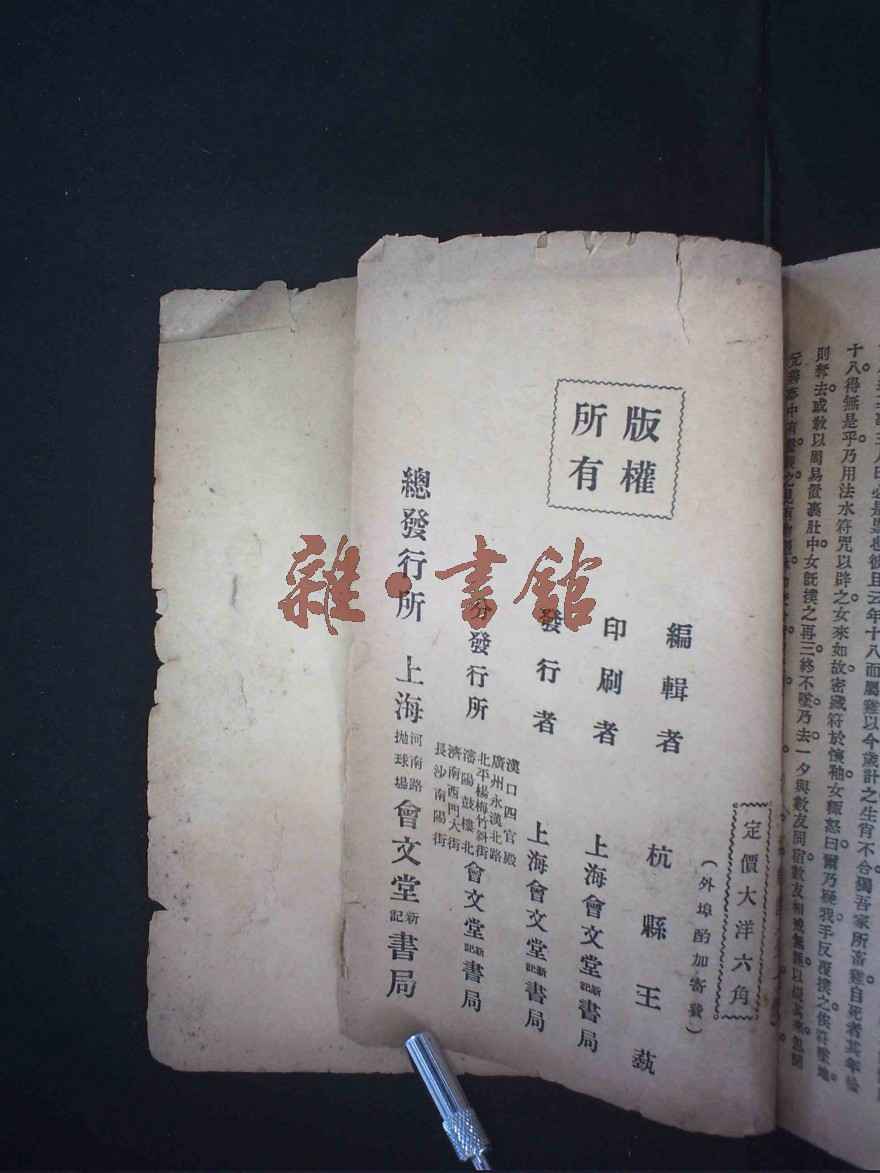 十八得無是乎乃用法水符咒以辟之女來如故密藏符於懷袖女輒怒曰爾乃疑我手反覆撲之俟符墜地
則奪去或敎以周易置裹肚中女旣撲之再三終不墜乃去一夕與數友同宿數友相戒無睡以
定價大洋六角
(外埠酌加寄費)
版權
所有
編輯者 杭縣王蓺
印刷者 上海會文堂新記書局
發行者 上海會文堂新記書局
分發行所
漢口四官殿
廣州永漢北路
北平楊梅竹斜街
瀋陽鼓樓北
濟南西門大街
長沙南陽街
會文堂新記書局
總發行所 上海河南路拋球場會文堂新記書局
雜·書館